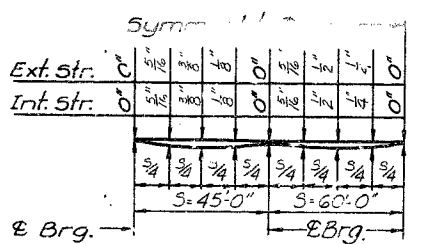 Ext. Str. 0" 5/16" 3/8" 1/8" 0" 5/16" 1/2" 1/4" 0"
Int. Str. 0" 5/16" 3/8" 1/8" 0" 5/16" 1/2" 1/4" 0"
S/4 S/4 S/4 S/4 S/4 S/4 S/4 S/4
S=45'-0" S=60'-0"
℄ Brg. ℄ Brg.